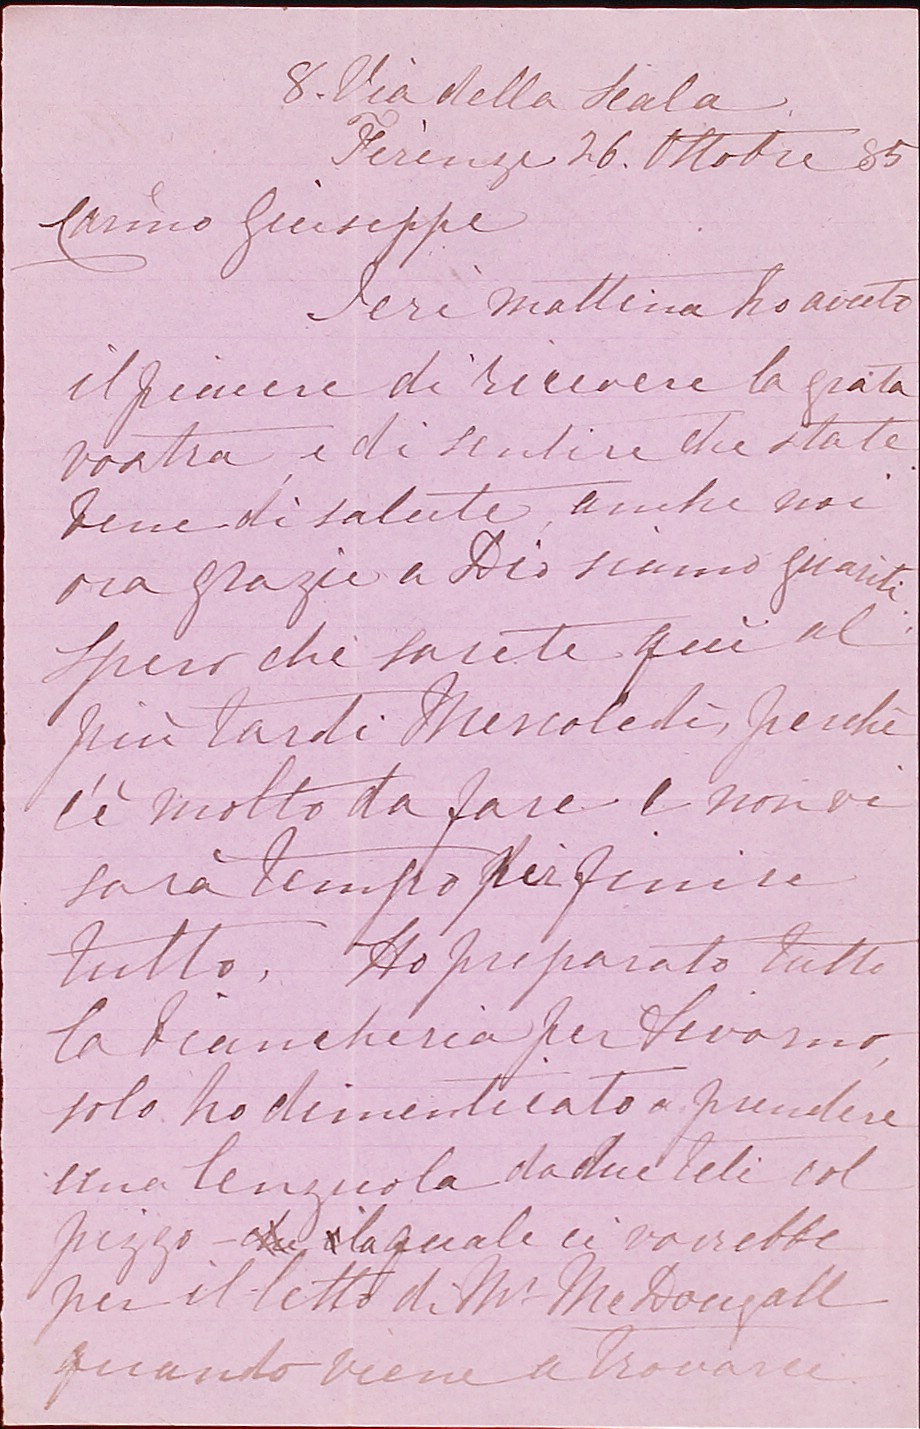 8. Via della Scala
Firenze 26. Ottobre 85
Carmo Giuseppe
Ieri mattina ho avuto
il piacere di ricevere la grata
vostra e di sentire che state
bene di salute, anche noi
ora grazie a Dio siamo guariti.
Spero che sarete quì al
più tardi Mercoledì, perchè
c'è molto da fare e non vi
sarà tempo per finire
tutto. Ho preparato tutto
la biancheria per Livorno,
solo ho dimenticato a prendere
una lenzuola da due teli col
pizzo - la quale ci vorrebbe
per il letto di Mr. McDougall
quando viene a trovarci